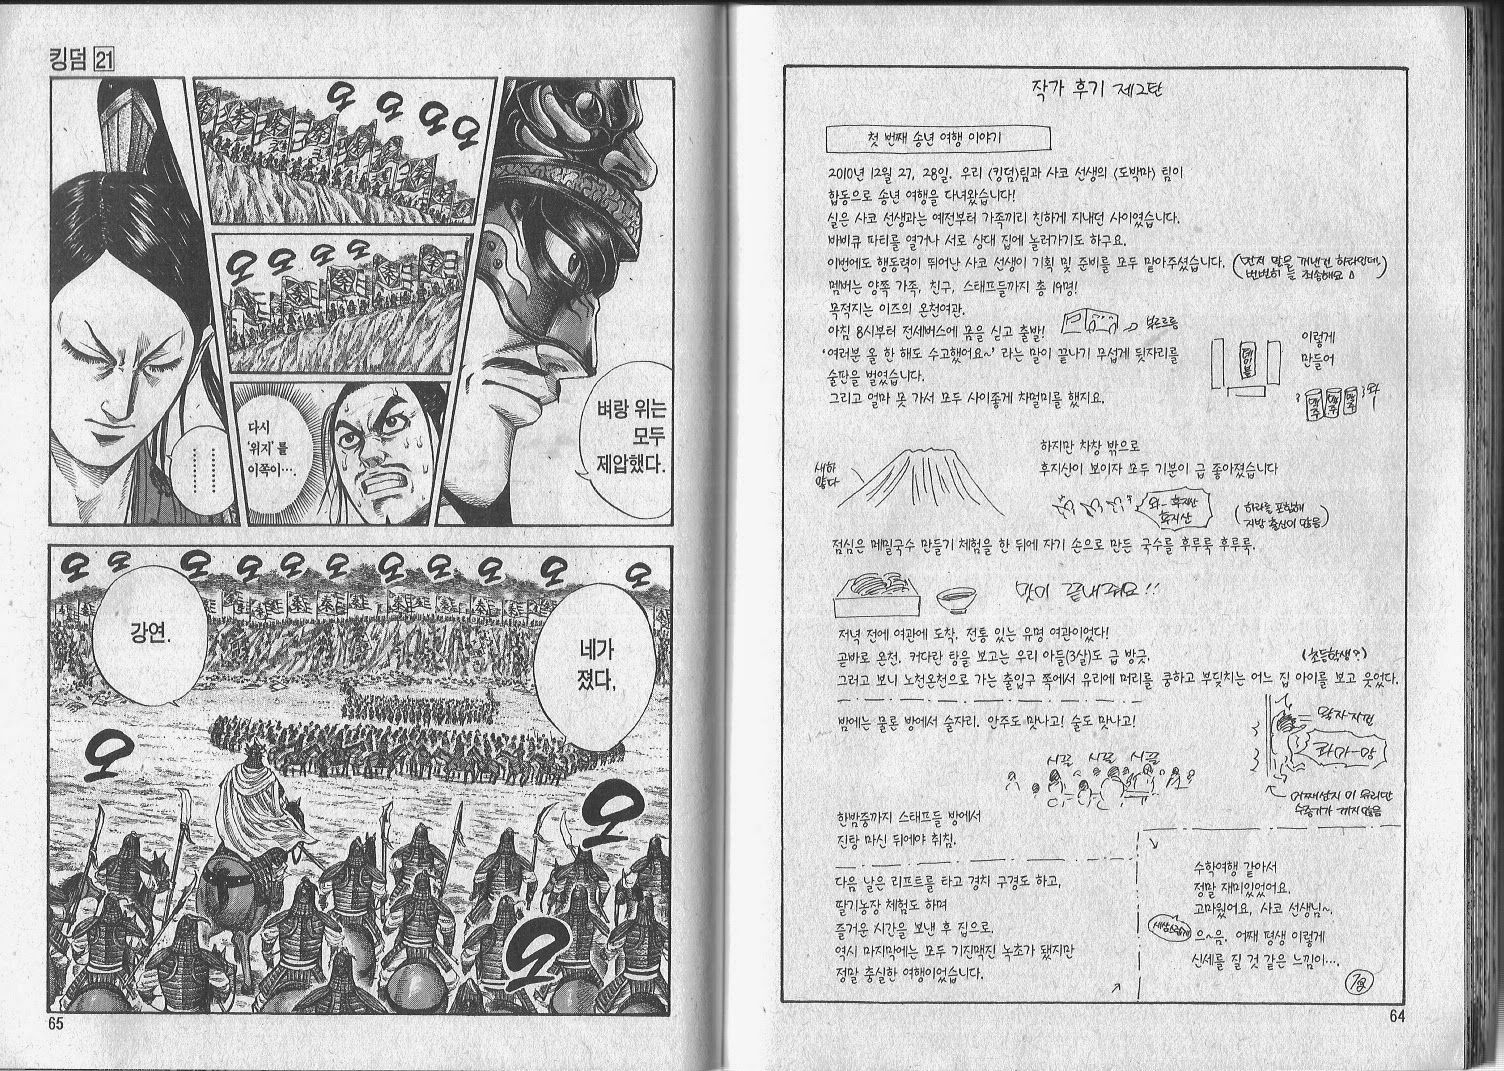 작가 후기 제2탄
첫 번째 송년 여행 이야기
2010년 12월 27, 28일. 우리 〈킹덤〉팀과 사코 선생의 〈도박마〉 팀이
합동으로 송년 여행을 다녀왔습니다!
실은 사코 선생과는 예전부터 가족끼리 친하게 지내던 사이였습니다.
바비큐 파티를 열거나 서로 상대 집에 놀러가기도 하구요.
이번에도 행동력이 뛰어난 사코 선생이 기획 및 준비를 모두 맡아주셨습니다.
(먼저 말을 꺼낸 건 하라인데.
번번히 죄송해요)
멤버는 양쪽 가족, 친구, 스태프들까지 총 19명!
목적지는 이즈의 온천여관.
아침 8시부터 전세버스에 몸을 싣고 출발!
부르르릉
'여러분 올 한 해도 수고했어요~' 라는 말이 끝나기 무섭게 뒷자리를
술판을 벌였습니다.
그리고 얼마 못 가서 모두 사이좋게 차멀미를 했지요.
이렇게
만들어
테이블
맥주
맥주
맥주
와
하지만 차창 밖으로
후지산이 보이자 모두 기분이 급 좋아졌습니다
새하
얗다
와- 후지산
후지산
(하라를 포함해
지방 출신이 많음)
점심은 메밀국수 만들기 체험을 한 뒤에 자기 손으로 만든 국수를 후루룩 후루룩.
맛이 끝내줘요!!
저녁 전에 여관에 도착. 전통 있는 유명 여관이었다!
곧바로 온천. 커다란 탕을 보고는 우리 아들(3살)도 급 방긋.
(초등학생?)
그러고 보니 노천온천으로 가는 출입구 쪽에서 유리에 머리를 쿵하고 부딪치는 어느 집 아이를 보고 웃었다.
밤에는 물론 방에서 술자리. 안주도 맛나고! 술도 맛나고!
시끌 시끌 시끌
콰아-앙
어째선지 이 유리만
수증기가 끼지 않음
한밤중까지 스태프들 방에서
진탕 마신 뒤에야 취침.
다음 날은 리프트를 타고 경치 구경도 하고,
딸기농장 체험도 하며
즐거운 시간을 보낸 후 집으로.
역시 마지막에는 모두 기진맥진 녹초가 됐지만
정말 충실한 여행이었습니다.
수학여행 같아서
정말 재미있었어요.
고마웠어요, 사코 선생님~.
으~음. 어째 평생 이렇게
신세를 질 것 같은 느낌이….
64
킹덤 21
벼랑 위는
모두
제압했다.
오
오
오
오
秦
오
오
오
오
秦
다시
'위지'를
이쪽이….
………
………
오 오 오 오 오 오 오 오 오 오
秦
네가
졌다,
강연.
오
오
오
65